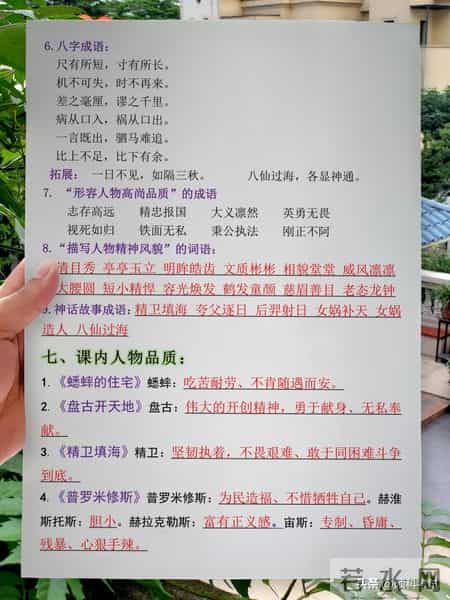 6. 八字成语：
尺有所短，寸有所长。
机不可失，时不再来。
差之毫厘，谬之千里。
病从口入，祸从口出。
一言既出，驷马难追。
比上不足，比下有余。
拓展： 一日不见，如隔三秋。 八仙过海，各显神通。
7. “形容人物高尚品质”的成语
志存高远 精忠报国 大义凛然 英勇无畏
视死如归 铁面无私 秉公执法 刚正不阿
8. “描写人物精神风貌”的词语：
清目秀 亭亭玉立 明眸皓齿 文质彬彬 相貌堂堂 威风凛凛
大腰圆 短小精悍 容光焕发 鹤发童颜 慈眉善目 老态龙钟
9. 神话故事成语：精卫填海 夸父逐日 后羿射日 女娲补天 女娲
造人 八仙过海
七、课内人物品质：
1. 《蟋蟀的住宅》蟋蟀：吃苦耐劳、不肯随遇而安。
2. 《盘古开天地》盘古：伟大的开创精神，勇于献身、无私奉
献。
3. 《精卫填海》精卫：坚韧执着，不畏艰难、敢于同困难斗争
到底。
4. 《普罗米修斯》普罗米修斯：为民造福、不惜牺牲自己。赫淮
斯托斯：胆小。赫拉克勒斯：富有正义感。宙斯：专制、昏庸、
残暴、心狠手辣。
头条
若水网